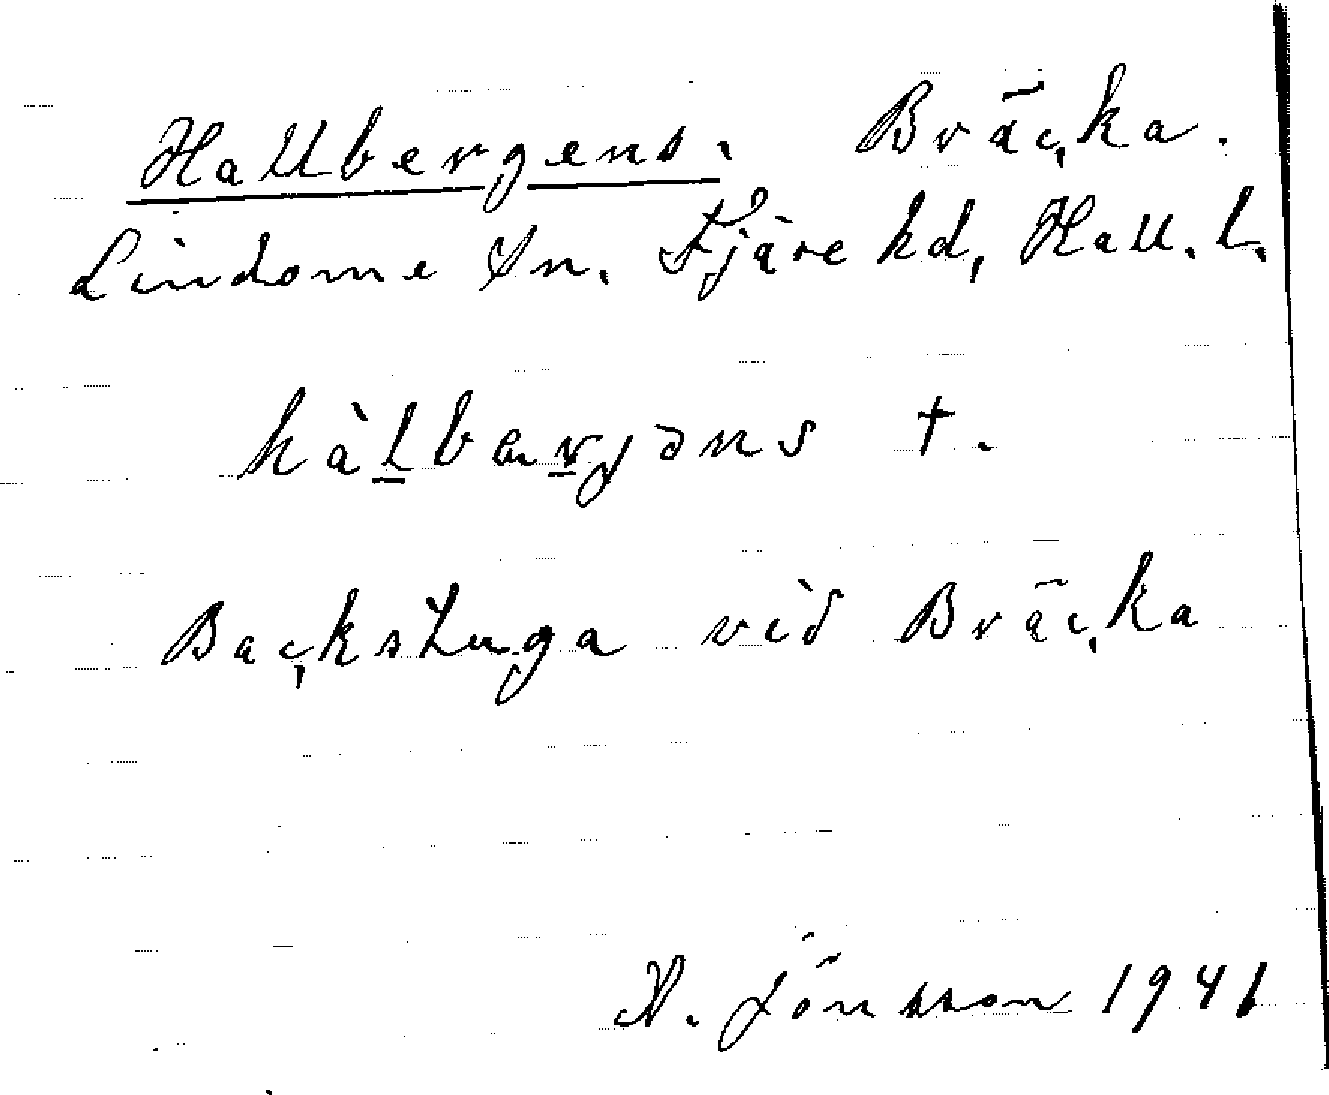 Hallbergens. Bräcka.
Lindome Sn. Fjäre hd, Hall. l.
hàlbærjəns †.
Backstuga vid Bräcka
N. Jönsson 1941